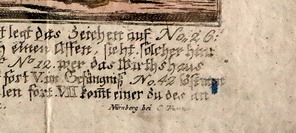 t legt das Zeichen auf No. 2 6:
einen Affen, sieht. solcher hin
No 12. wer das Wirthshaus
fort V. im Gefängniß No. 42
len fort. VII komt einer zu des an
Nürnberg bei C.